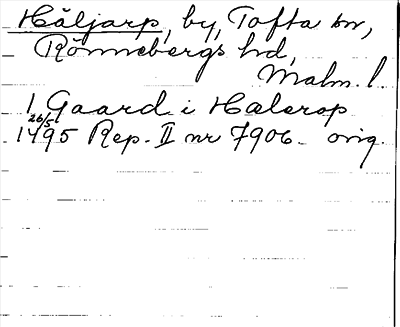 Häljarp, by, Tofta sn,
Rönnebergs hd,
Malm. l.
1 Gaard i Halerop
26/5 1495 Rep. II nr 7906 orig.